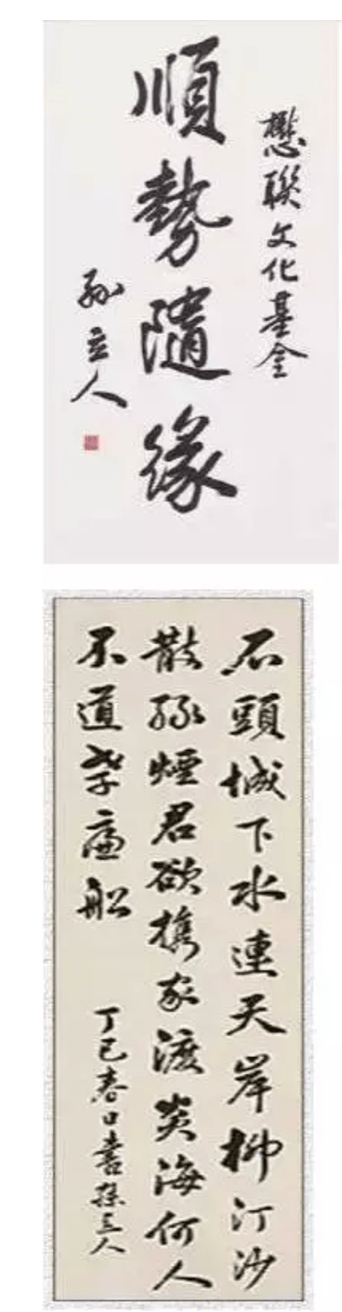 懋聯文化基金
順勢隨緣
孫立人
石頭城下水連天岸柳汀沙
散綠煙君欲携家渡炎海何人
不道孝廉船
丁巳春日書孫立人